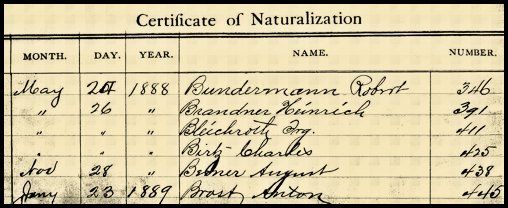 Certificate of Naturalization
MONTH. DAY. YEAR. NAME. NUMBER.
May 24 1888 Bundermann Robert 346
" 26 " Brandner Heinrich 391
" " " Bleichroth 411
" " " Birtz Charles 425
Nov 28 " August 438
Jany 23 1889 Brost Anton 445